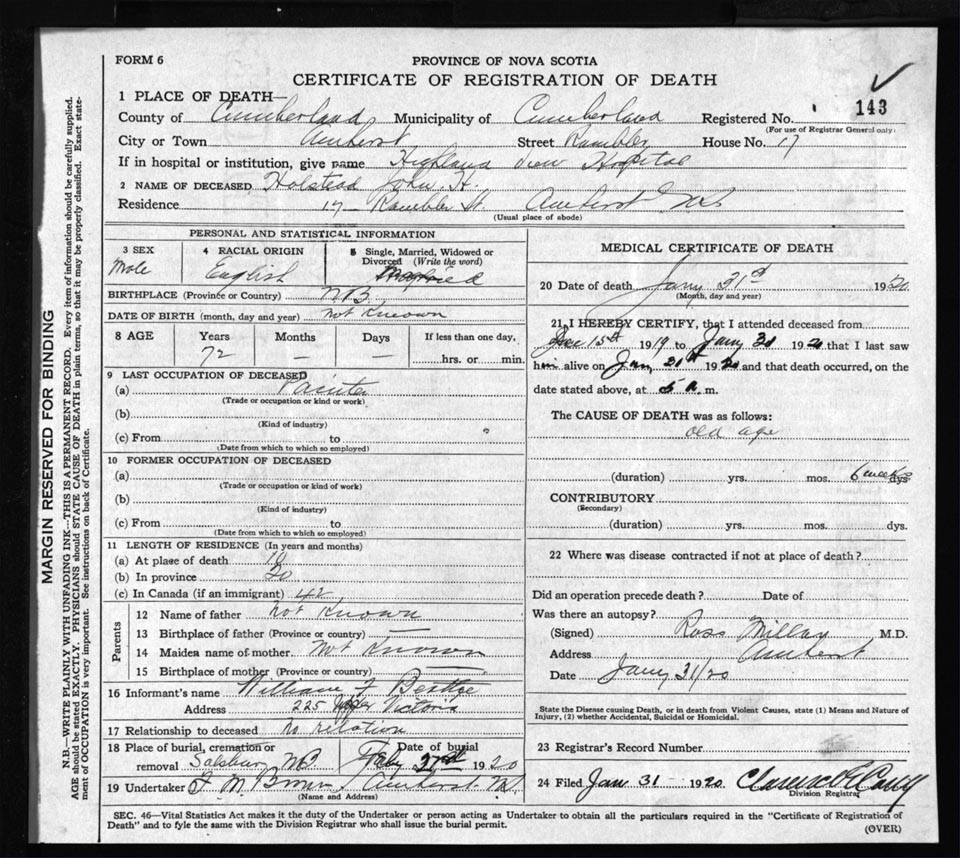 FORM 6
PROVINCE OF NOVA SCOTIA
CERTIFICATE OF REGISTRATION OF DEATH
1 PLACE OF DEATH—
County of Cumberland Municipality of Cumberland Registered No. 143
(For use of Registrar General only)
City or Town Amherst Street Rambler House No. 17
If in hospital or institution, give name Highland View Hospital
2 NAME OF DECEASED Holstead John H.
Residence 17 Rambler St. Amherst N.S.
(Usual place of abode)
PERSONAL AND STATISTICAL INFORMATION
3 SEX 4 RACIAL ORIGIN 5 Single, Married, Widowed or
Divorced (Write the word)
Male English
BIRTHPLACE (Province or Country) N.B.
DATE OF BIRTH (month, day and year) not known
8 AGE Years Months Days If less than one day,
72 — — hrs. or min.
9 LAST OCCUPATION OF DECEASED
(a) Painter
(Trade or occupation or kind or work)
(b)
(Kind of industry)
(c) From to
(Date from which to which so employed)
10 FORMER OCCUPATION OF DECEASED
(a)
(Trade or occupation or kind of work)
(b)
(Kind of industry)
(c) From to
(Date from which to which so employed)
11 LENGTH OF RESIDENCE (In years and months)
(a) At place of death 10
(b) In province 20
(c) In Canada (if an immigrant) 42
Parents
12 Name of father not known
13 Birthplace of father (Province or country) —
14 Maiden name of mother not known
15 Birthplace of mother (Province or country) —
16 Informant's name William F.
Address 225 Victoria
17 Relationship to deceased no relation
18 Place of burial, cremation or Date of burial
removal Salsbury N.B. Feby 2nd 1920
19 Undertaker Amherst N.S.
(Name and Address)
MEDICAL CERTIFICATE OF DEATH
20 Date of death Jany 31st 1920
(Month, day and year)
21. I HEREBY CERTIFY, that I attended deceased from
15th 1919 to Jany 31 1920 that I last saw
him alive on Jany 1920 and that death occurred, on the
date stated above, at 5 a.m.
The CAUSE OF DEATH was as follows:
old age
(duration) yrs. mos. 6 weeks dys.
CONTRIBUTORY
(Secondary)
(duration) yrs. mos. dys.
22 Where was disease contracted if not at place of death?
Did an operation precede death? Date of
Was there an autopsy?
(Signed) Ross Millar M.D.
Address Amherst
Date Jany 31/20
State the Disease causing Death, or in death from Violent Causes, state (1) Means and Nature of
Injury, (2) whether Accidental, Suicidal or Homicidal.
23 Registrar's Record Number
24 Filed Jan 31 1920 Clarence
Division Registrar
SEC. 46—Vital Statistics Act makes it the duty of the Undertaker or person acting as Undertaker to obtain all the particulars required in the "Certificate of Registration of
Death" and to fyle the same with the Division Registrar who shall issue the burial permit.
(OVER)
MARGIN RESERVED FOR BINDING
N.B.—WRITE PLAINLY WITH UNFADING INK—THIS IS A PERMANENT RECORD. Every item of information should be carefully supplied.
AGE should be stated EXACTLY. PHYSICIANS should STATE CAUSE OF DEATH in plain terms, so that it may be properly classified. Exact state-
ment of OCCUPATION is very important. See instructions on back of Certificate.